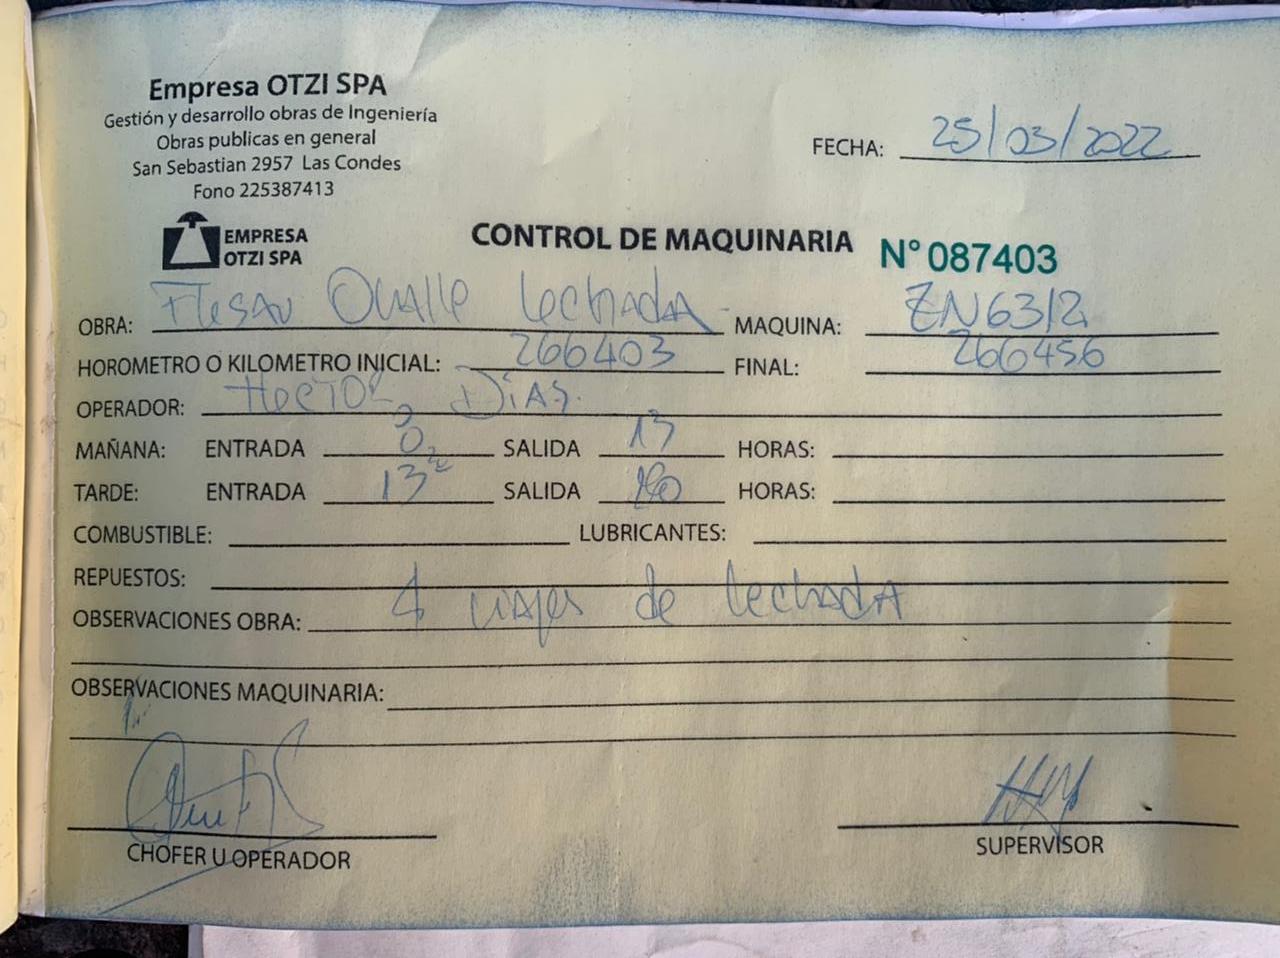 Empresa OTZI SPA
Gestión y desarrollo obras de Ingeniería
Obras publicas en general
San Sebastian 2957 Las Condes
Fono 225387413
FECHA: 25/03/2022
EMPRESA
OTZI SPA
CONTROL DE MAQUINARIA N° 087403
OBRA: Ovalle lechada MAQUINA: ZN6312
HOROMETRO O KILOMETRO INICIAL: 266403 FINAL: 266456
OPERADOR: Hector Dias.
MAÑANA: ENTRADA SALIDA 13 HORAS:
TARDE: ENTRADA 13 SALIDA HORAS:
COMBUSTIBLE: LUBRICANTES:
REPUESTOS:
OBSERVACIONES OBRA: 4 viajes de lechada
OBSERVACIONES MAQUINARIA:
CHOFER U OPERADOR SUPERVISOR